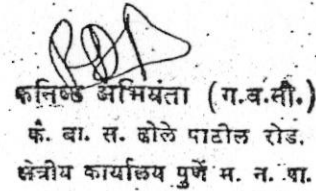 कनिष्ठ अभियंता (ग.व.नी.)
कै. बा. स. ढोले पाटील रोड.
क्षेत्रीय कार्यालय पुणें म. न. पा.